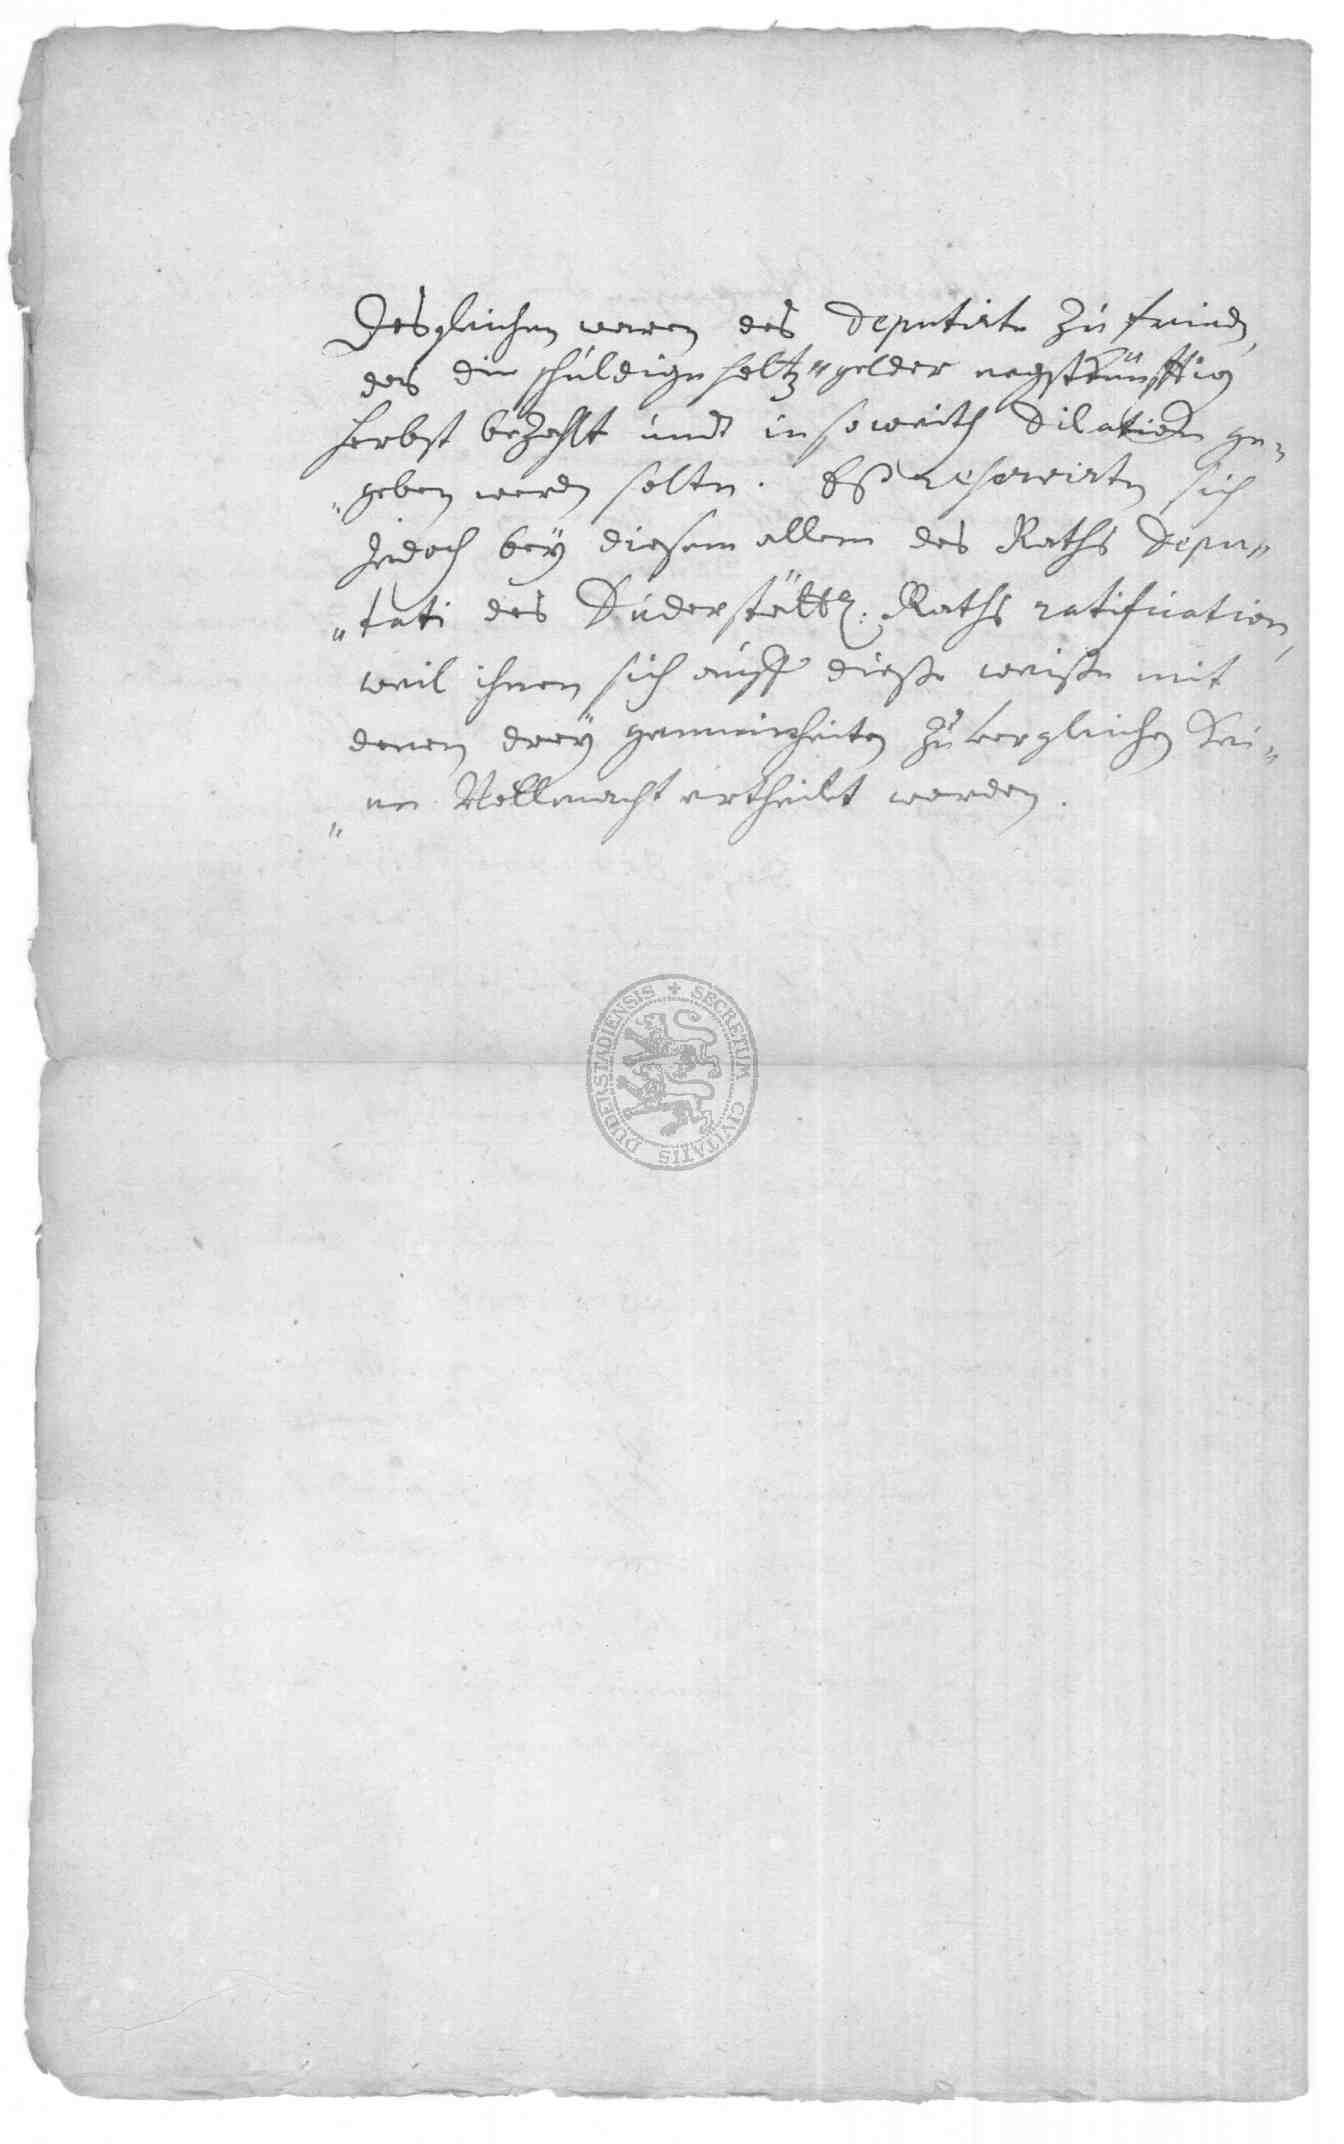 Desgleichen waren des deputirte zu frieden,
das die schuldige holtz"gelder negstkünfftig
herbst bezahlt undt in soweith dilation ge"
"geben werden solten. Eß reserwirten sich
Jedoch beÿ diesem allem des Raths depu"
"tati des Duderstättl: Raths ratification,
weil ihnen sich auff diese weise mit
denen dreÿ gemeinheiten zu vergleichen kei"
"ne Vollmacht ertheilet worden.
SECRETUM CIVITATIS DUDERSTADIENSIS